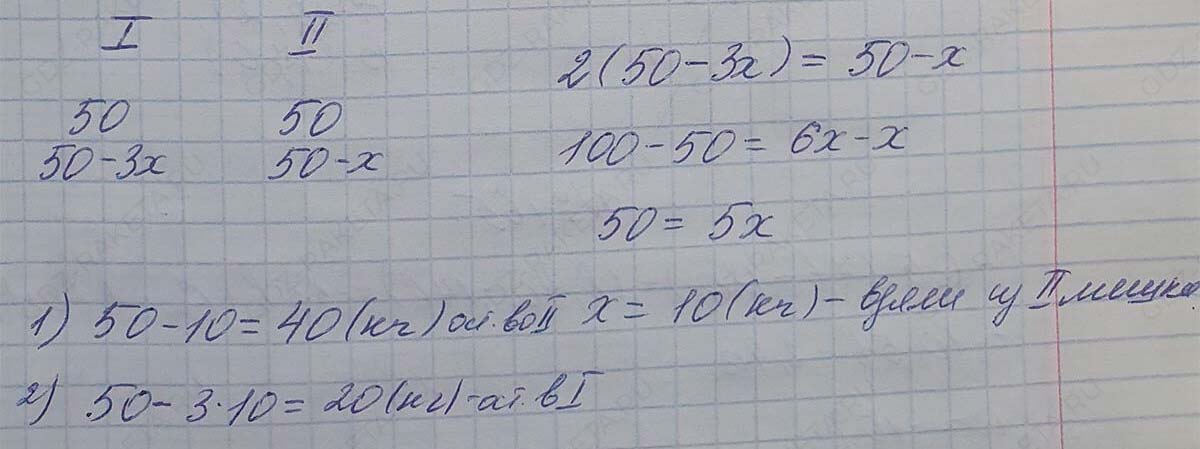 I II
50 50
50-3x 50-x
2(50-3x) = 50-x
100-50 = 6x-x
50 = 5x
x = 10 (кг) - взяли из II мешка
1) 50-10 = 40 (кг) ост. во II
2) 50-3·10 = 20 (кг) - ост. в I